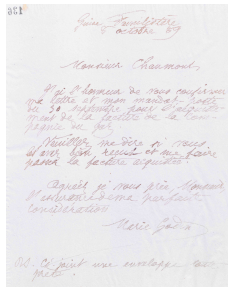 136
Guise Familistère
5 octobre 89
Monsieur Chaumont,
J'ai l'honneur de vous confirmer
ma lettre et mon mandat poste
du 30 septembre pour
ment de la facture de la Com-
pagnie du gaz.
Veuillez me dire si vous
avez bien reçu et me faire
passer la facture acquittée.
Agréez je vous prie, Monsieur
l'assurance de ma parfaite
considération
Marie
P.S. Ci joint une enveloppe